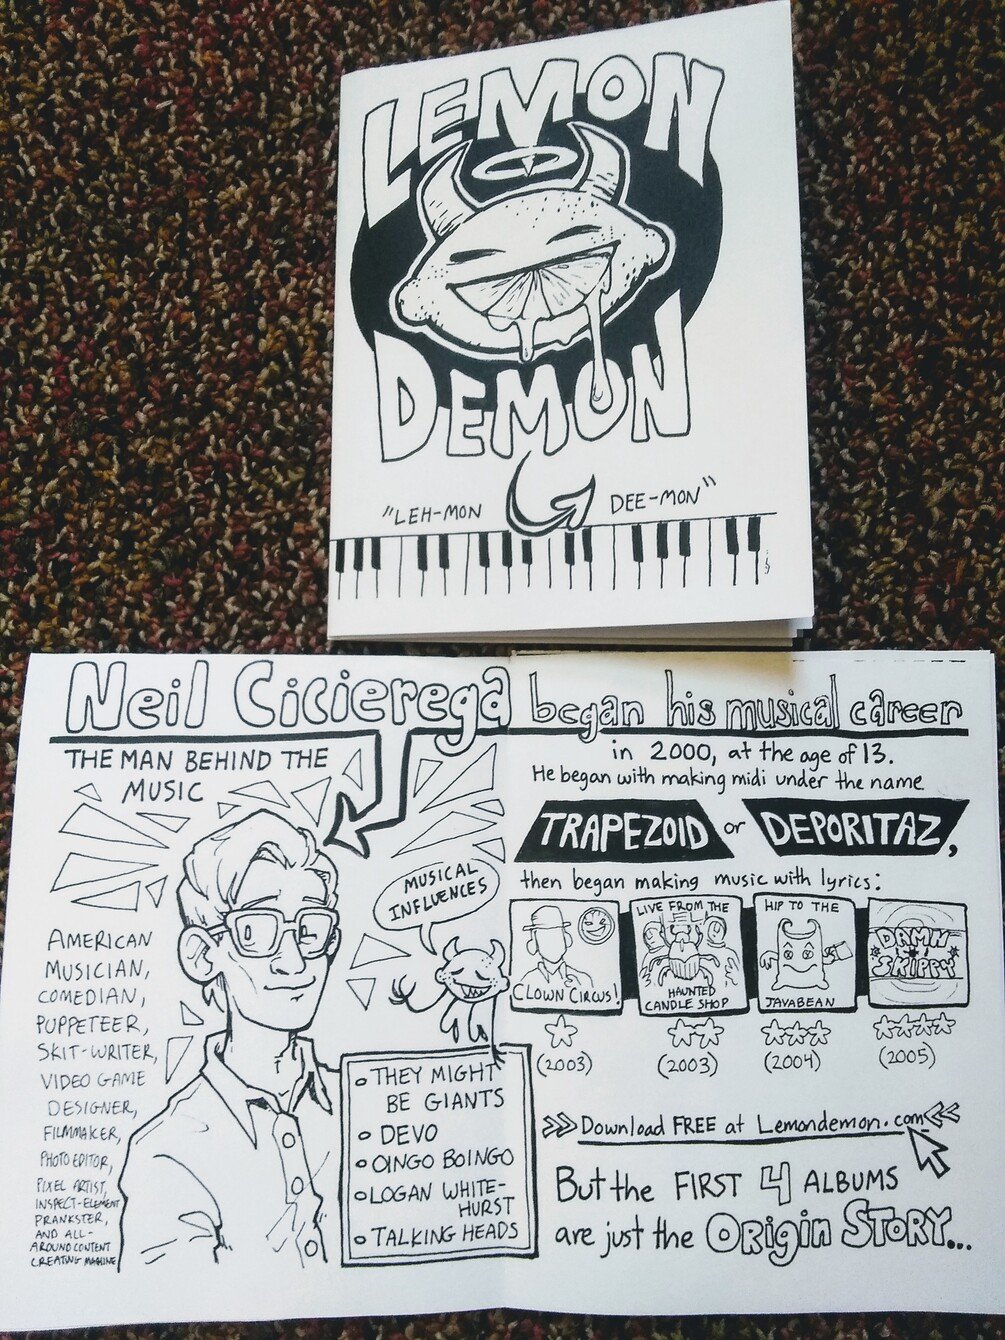 LEMON
DEMON
"LEH-MON DEE-MON"
Neil Cicierega
THE MAN BEHIND THE
MUSIC
AMERICAN
MUSICIAN,
COMEDIAN,
PUPPETEER,
SKIT-WRITER,
VIDEO GAME
DESIGNER,
FILMMAKER,
PHOTO EDITOR,
PIXEL ARTIST,
INSPECT-ELEMENT
PRANKSTER,
AND ALL-
AROUND CONTENT
CREATING MACHINE
MUSICAL
INFLUENCES
THEY MIGHT
BE GIANTS
DEVO
OINGO BOINGO
LOGAN WHITE-
HURST
TALKING HEADS
began his musical career
in 2000, at the age of 13.
He began with making midi under the name
TRAPEZOID or DEPORITAZ,
then began making music with lyrics:
CLOWN CIRCUS!
(2003)
LIVE FROM THE
HAUNTED
CANDLE SHOP
(2003)
HIP TO THE
JAVABEAN
(2004)
DAMN
SKIPPY
(2005)
Download FREE at Lemondemon.com
But the FIRST 4 ALBUMS
are just the Origin Story...